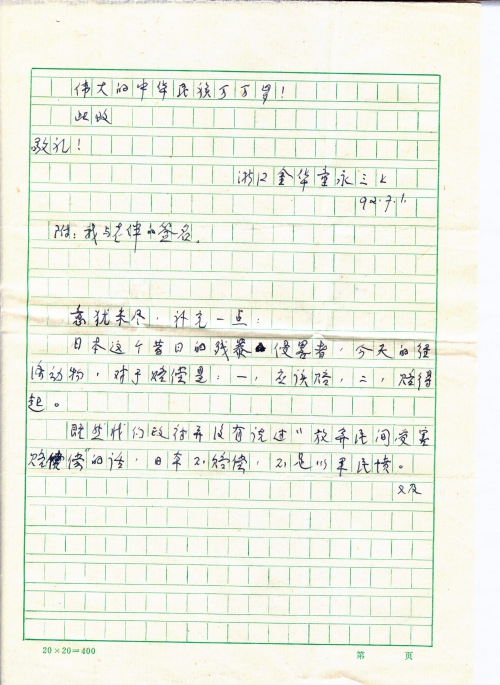 伟大的中华民族万万岁！
此致
敬礼！
浙江金华童永三上
92.7.1.
附：我与老伴的签名。
意犹未尽，补充一点：
日本这个昔日的残暴侵略者，今天的经
济动物，对于赔偿是：一，应该赔，二，赔得
起。
既然我们政府并没有说过“放弃民间受害
赔偿”的话，日本不赔偿，不足以平民愤。
又及
20×20=400
第 页